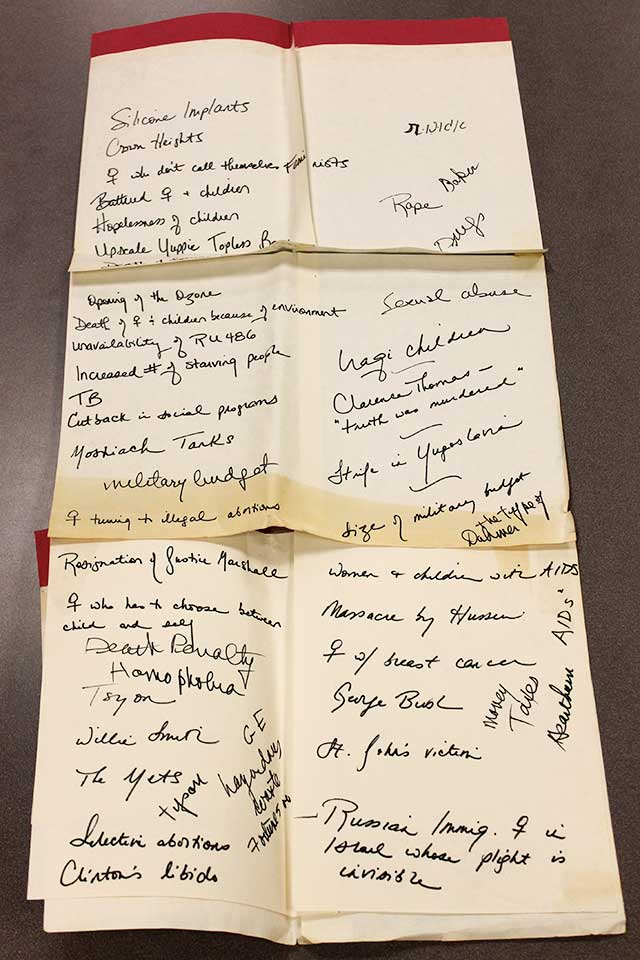 Silicone Implants
Crown Heights
♀ who don't call themselves Feminists
Battered ♀ + children
Hopelessness of children
Upscale Yuppie Topless
Baker
Rape
Drugs
Opening of the Ozone
Death of ♀ + children because of environment
Unavailability of RU 486
Increased # of starving people
TB
Cutback in social programs
Moshiach Tanks
military budget
♀ turning to illegal abortions
Sexual abuse
Iraqi children
Clarence Thomas —
"truth was murdered"
Strife in Yugoslavia
Size of military budget
the type of
Dahmer
Resignation of Justice Marshall
♀ who has to choose between
child and self
Death Penalty
Homophobia
Tsyon
Willie Smith
The Mets
tyson
GE
hazardous
waste
Selective abortions
Clinton's libido
Women + children with AIDS
Massacre by Hussein
♀ w/ breast cancer
George Bush
money
Talks
AIDS"
St. John's victim
— Russian Immig. ♀ in
Israel whose plight is
invisible